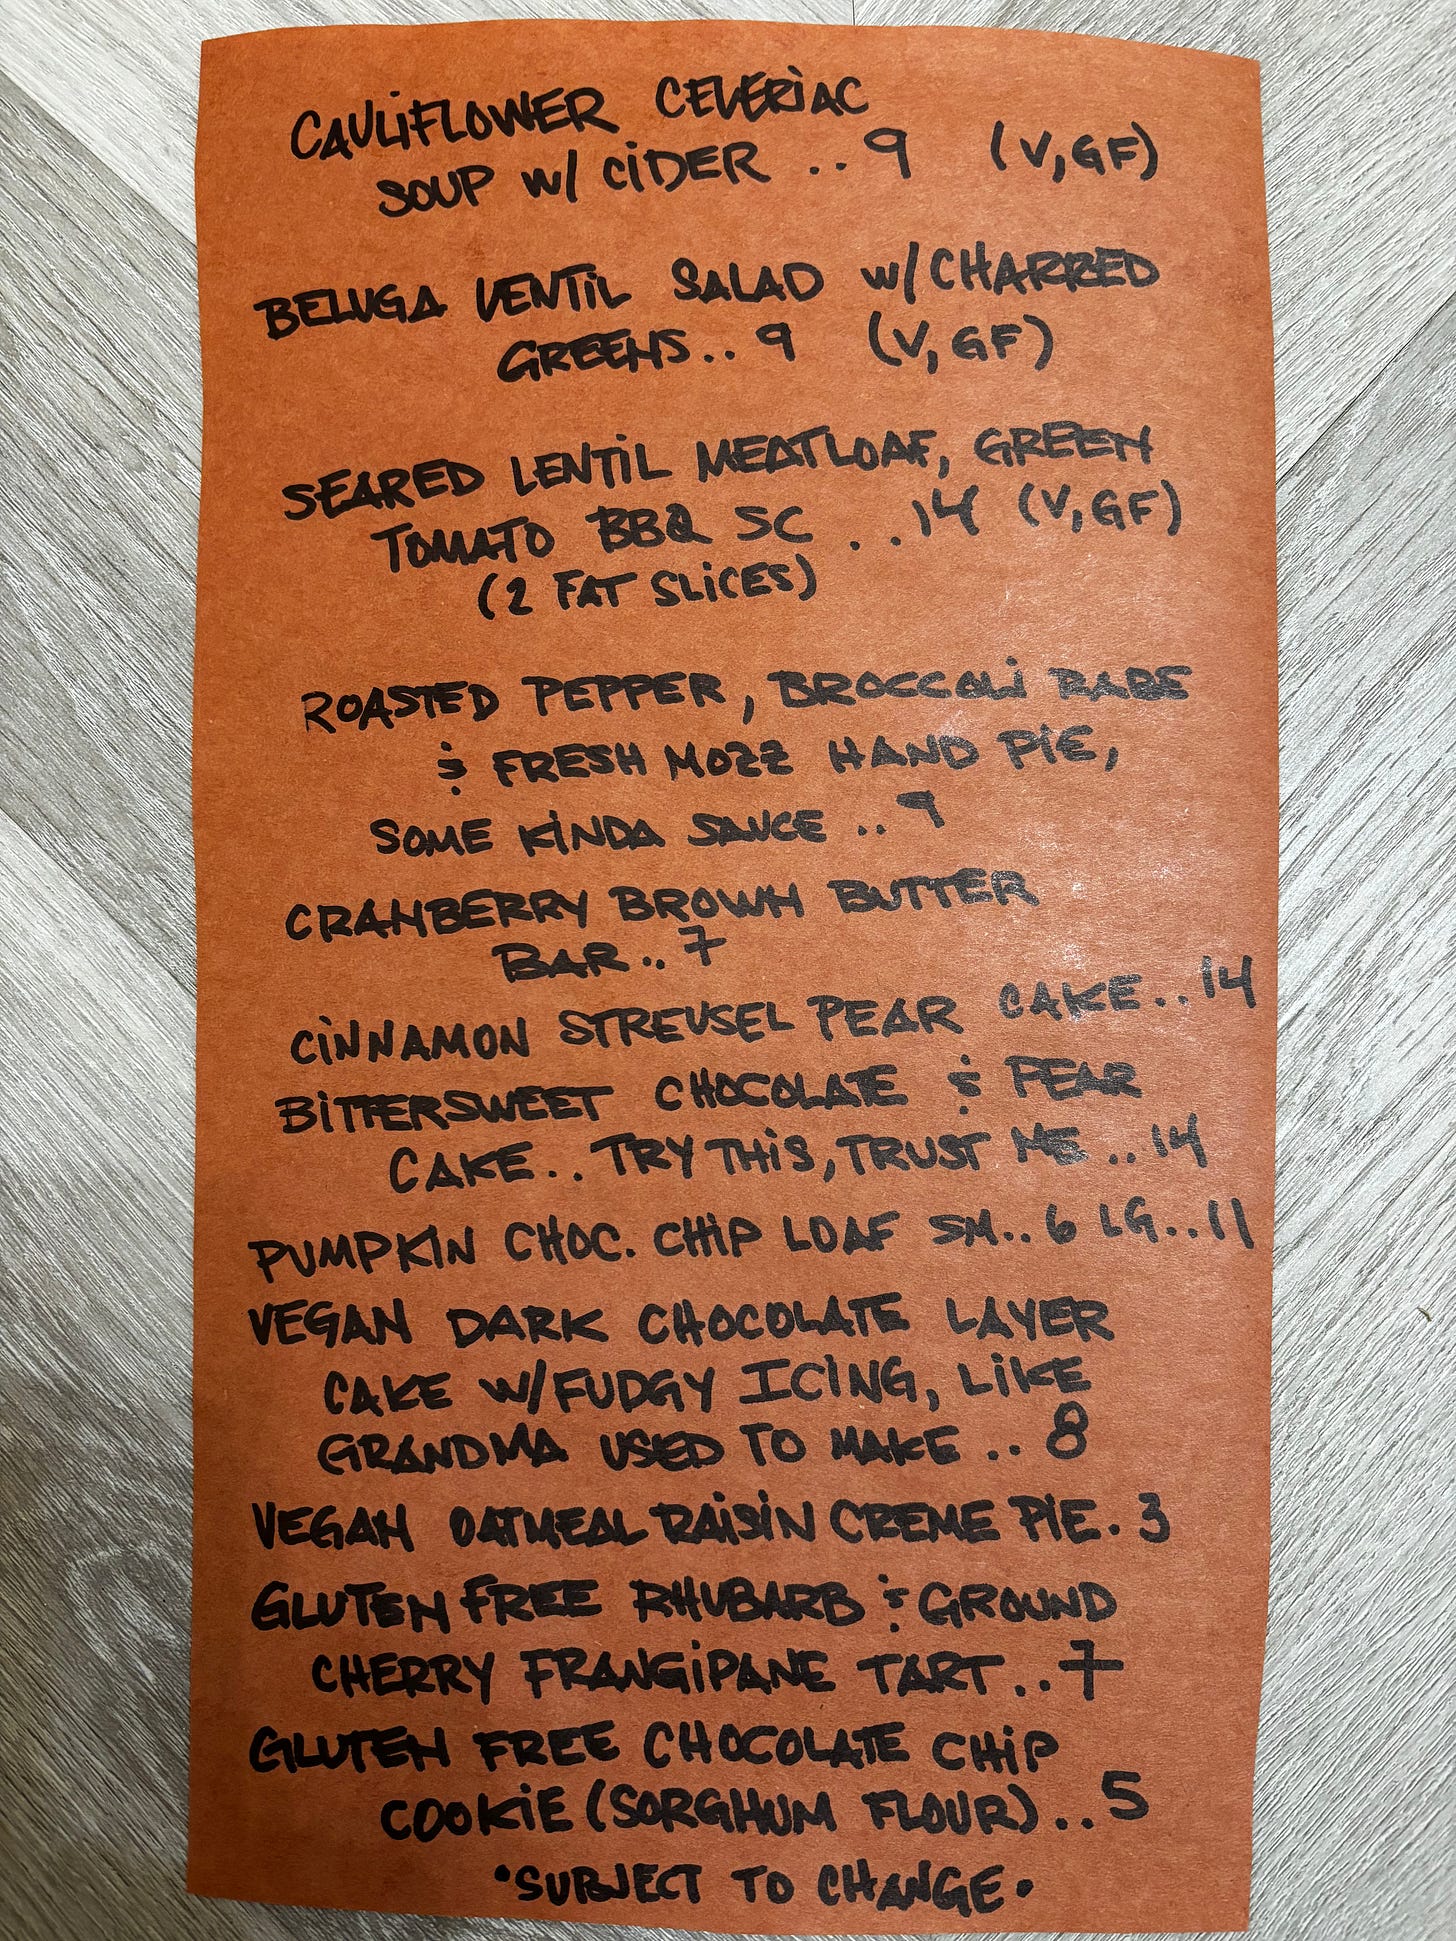 CAULIFLOWER CELERIAC
SOUP W/ CIDER .. 9 (V, GF)
BELUGA LENTIL SALAD W/ CHARRED
GREENS .. 9 (V, GF)
SEARED LENTIL MEATLOAF, GREEN
TOMATO BBQ SC ... 14 (V, GF)
(2 FAT SLICES)
ROASTED PEPPER, BROCCOLI RABE
& FRESH MOZZ HAND PIE,
SOME KINDA SAUCE .. 9
CRANBERRY BROWN BUTTER
BAR .. 7
CINNAMON STREUSEL PEAR CAKE .. 14
BITTERSWEET CHOCOLATE & PEAR
CAKE .. TRY THIS, TRUST ME .. 14
PUMPKIN CHOC. CHIP LOAF SM .. 6 LG .. 11
VEGAN DARK CHOCOLATE LAYER
CAKE W/ FUDGY ICING, LIKE
GRANDMA USED TO MAKE .. 8
VEGAN OATMEAL RAISIN CREME PIE . 3
GLUTEN FREE RHUBARB & GROUND
CHERRY FRANGIPANE TART .. 7
GLUTEN FREE CHOCOLATE CHIP
COOKIE (SORGHUM FLOUR) .. 5
• SUBJECT TO CHANGE •